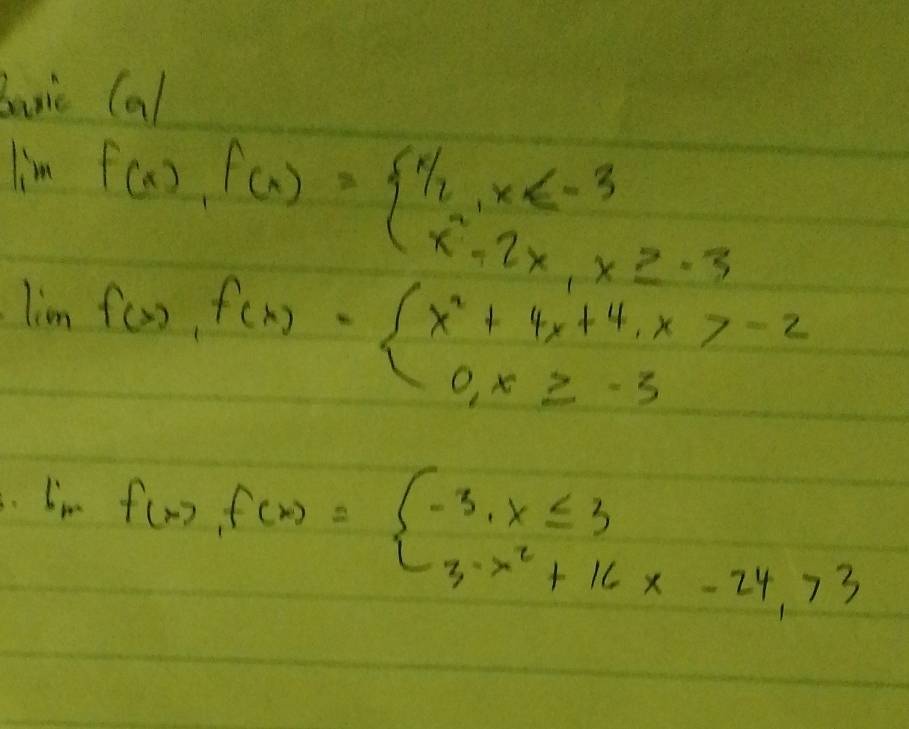 Basic Cal
lim f(x), f(x) = { x/2, x < -3
x² - 2x, x ≥ -3
lim f(x), f(x) = { x² + 4x + 4, x > -2
0, x ≥ -3
. lim f(x), f(x) = { -3, x ≤ 3
3 - x² + 16x - 24, > 3